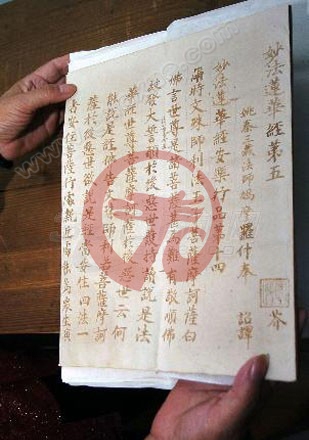 妙法蓮華經第五
姚秦三藏法師鳩摩羅什奉 詔譯
妙法蓮華經安樂行品第十四
爾時文殊師利法王子菩薩摩訶薩白
佛言世尊是諸菩薩甚為難有敬順佛
故發大誓願於後惡世護持讀說是法
華經世尊菩薩摩訶薩於後惡世云何
能說是經佛告文殊師利若菩薩摩訶
薩於後惡世欲說是經當安住四法一
者安住菩薩行處親近處能為眾生演